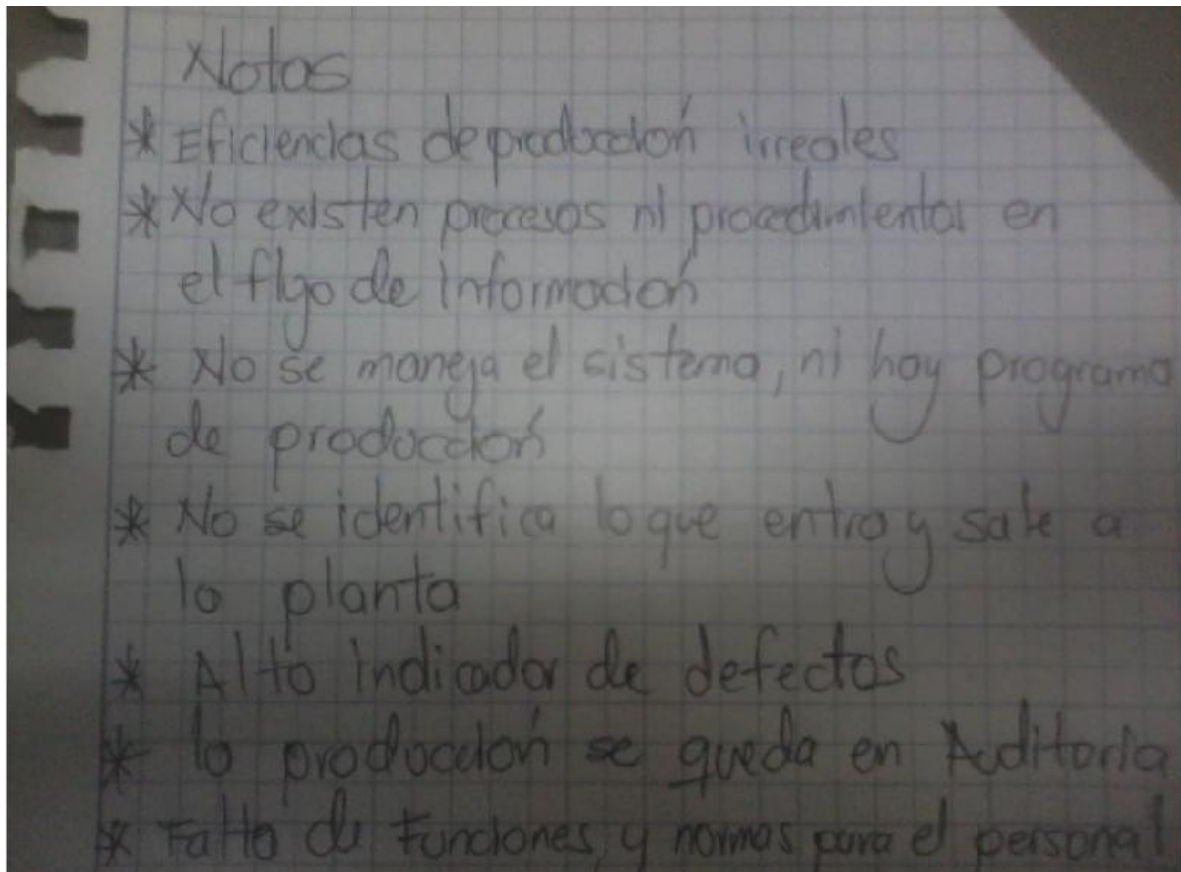 Notas
* Eficiencias de producción irreales
* No existen procesos ni procedimientos en
el flujo de información
* No se maneja el sistema, ni hay programa
de producción
* No se identifica lo que entra y sale a
la planta
* Alto indicador de defectos
* la producción se queda en Auditoria
* Falta de Funciones, y normas para el personal